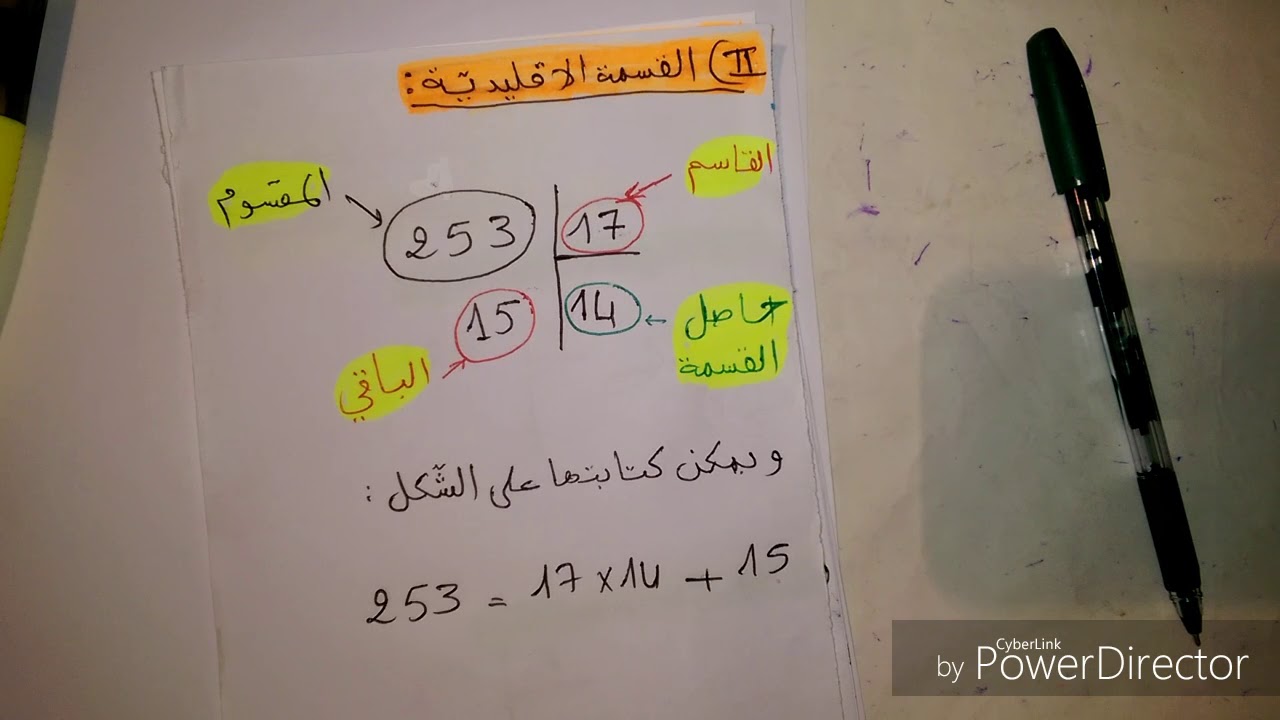 II) القسمة الاقليديّة:
القاسم
المقسوم
253 17
15 14
حاصل
القسمة
الباقي
ويمكن كتابتها على الشّكل:
253 = 17 x 14 + 15
CyberLink
by PowerDirector